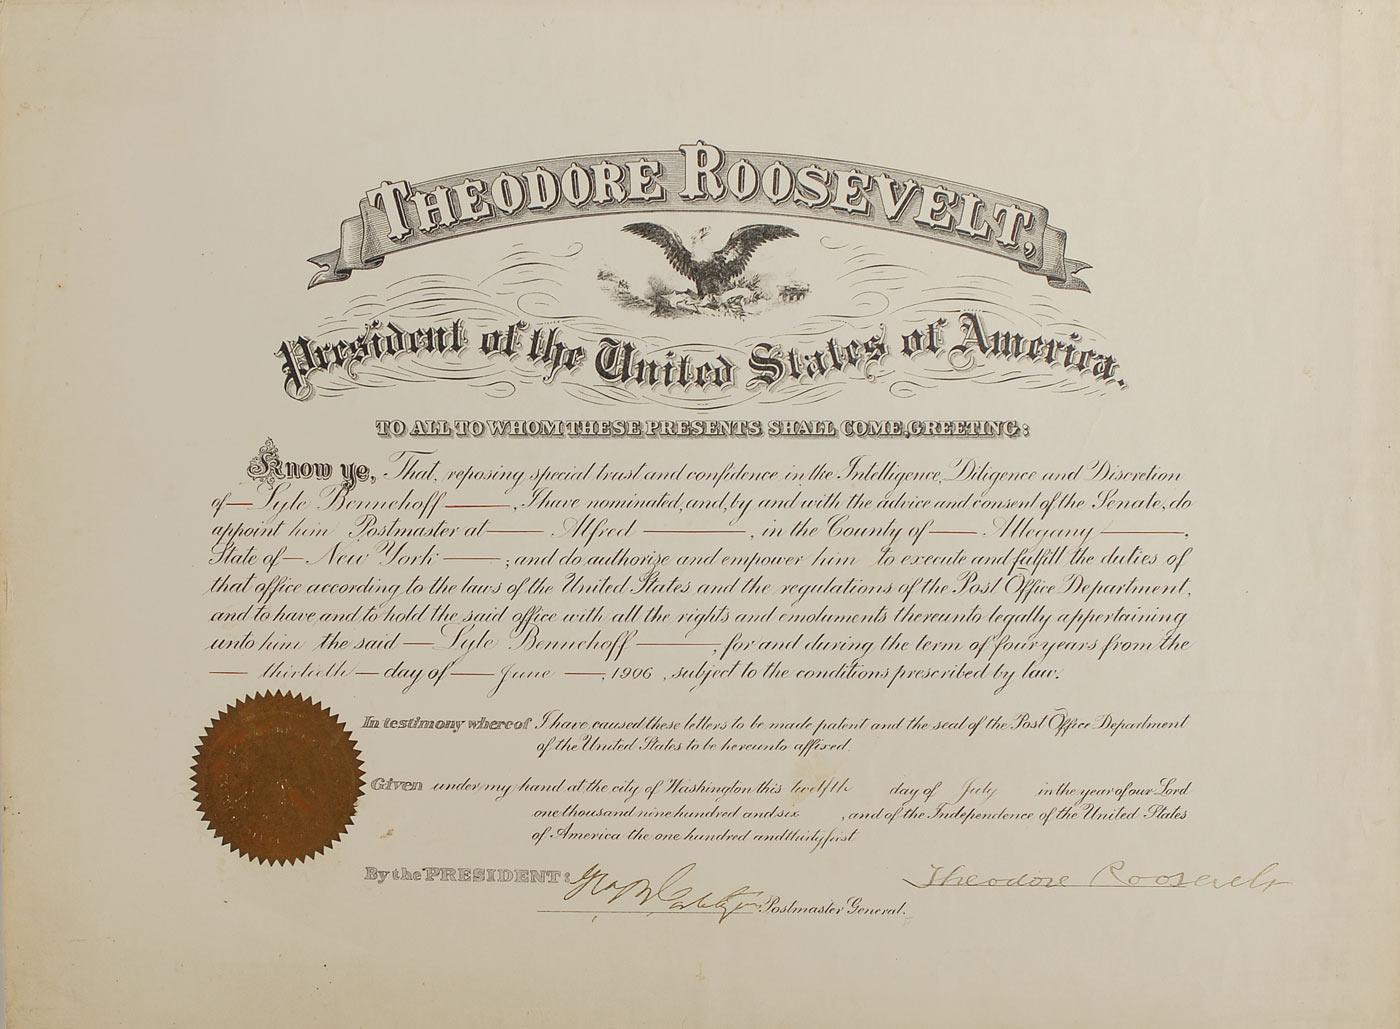 THEODORE ROOSEVELT,
President of the United States of America.
TO ALL TO WHOM THESE PRESENTS SHALL COME, GREETING:
Know ye, That, reposing special trust and confidence in the Intelligence, Diligence and Discretion
of — Lyle Bennehoff —, I have nominated, and, by and with the advice and consent of the Senate, do
appoint him Postmaster at — Alfred —, in the County of — Allegany —,
State of — New York —; and do authorize and empower him to execute and fulfill the duties of
that office according to the laws of the United States and the regulations of the Post Office Department,
and to have and to hold the said office with all the rights and emoluments thereunto legally appertaining
unto him the said — Lyle Bennehoff —, for and during the term of four years from the
— thirtieth — day of — June —, 1906, subject to the conditions prescribed by law.
In testimony whereof I have caused these letters to be made patent and the seal of the Post Office Department
of the United States to be hereunto affixed.
Given under my hand at the city of Washington this twelfth day of July in the year of our Lord
one thousand nine hundred and six, and of the Independence of the United States
of America the one hundred and thirty first
By the PRESIDENT:
Theodore Roosevelt
Postmaster General.